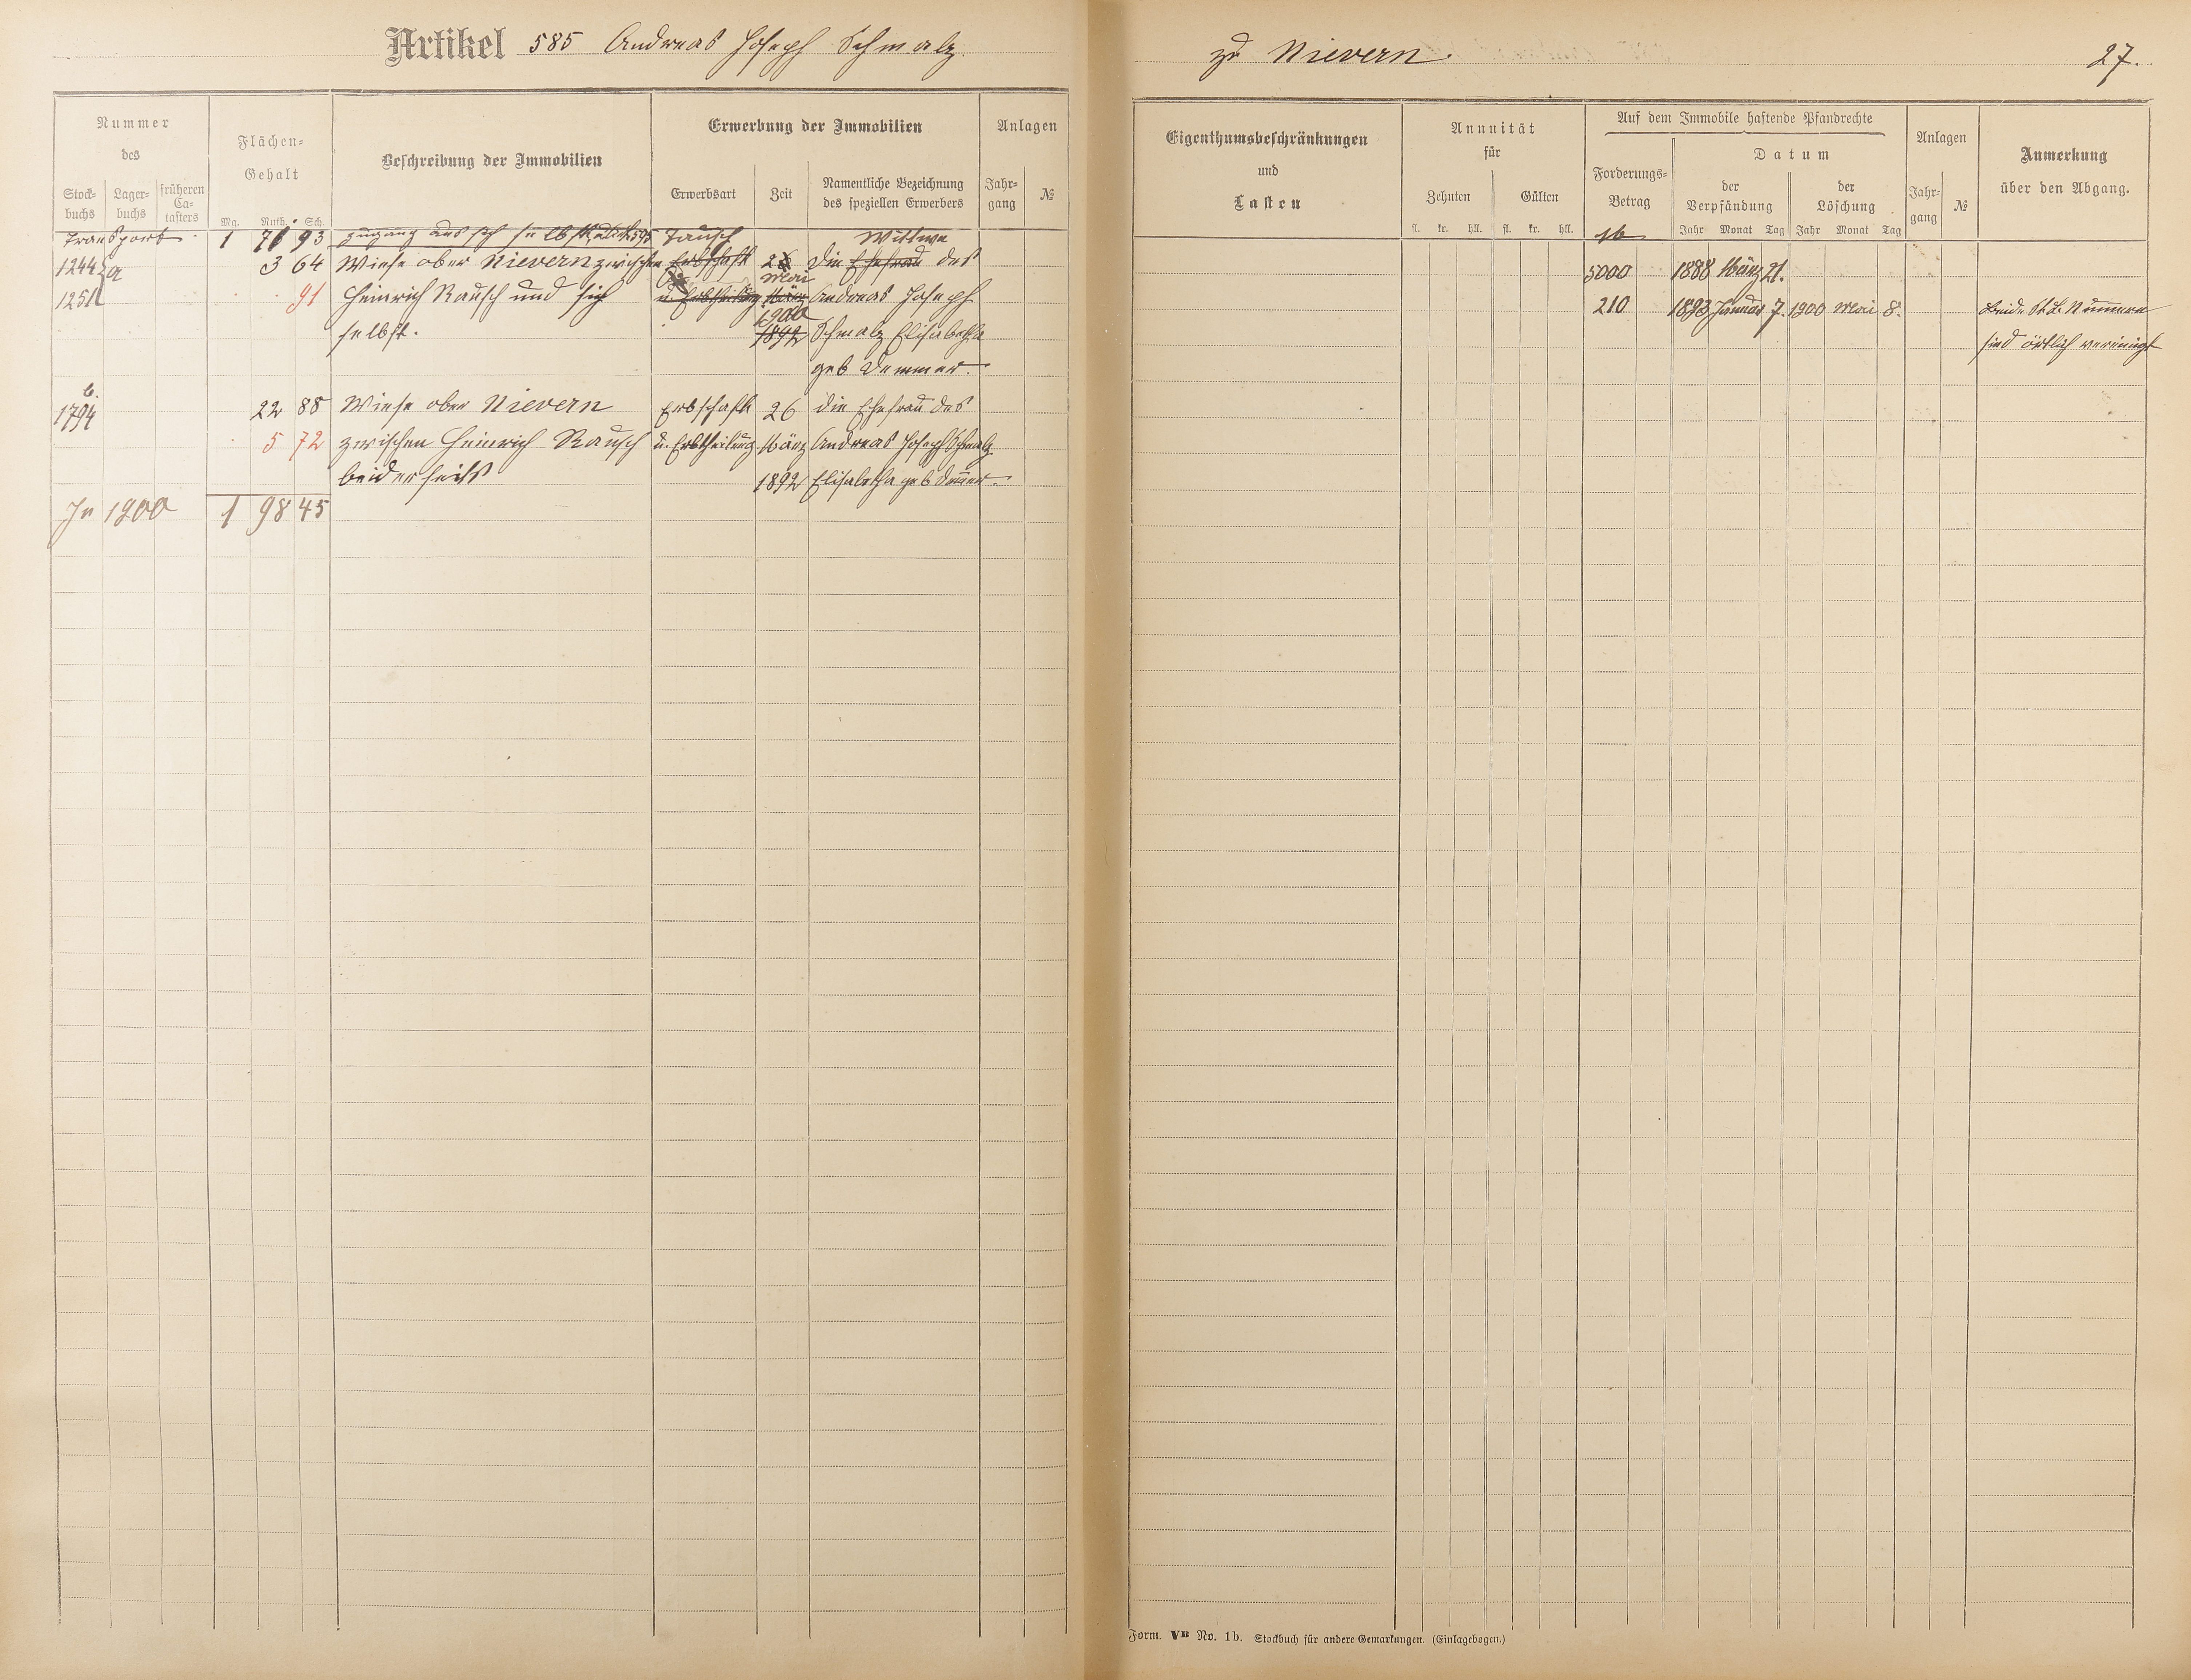 Artikel 585 Andreas Joseph Schmalz
zu Nievern.
27.
Nummer
des
Stock-
buchs
Lager-
buchs
früheren
Ca-
tasters
Flächen-
Gehalt
Mg. Ruth. Sch.
Beschreibung der Immobilien
Erwerbung der Immobilien
Erwerbsart
Zeit
Namentliche Bezeichnung
des speziellen Erwerbers
Anlagen
Jahr-
gang
№
Transport 1 71 93 Zugang aus sich selbst Tausch Wittwe
1244 a 3 64 Wiese ober Nievern zwischen Erbschaft die Ehefrau des
Mai
1251 91 Heinrich Rausch und sich u. Erbtheilung März Andreas Joseph
1900
selbst. 1892 Schmalz Elisabetha
geb Demmer.
b.
1794 22 88 Wiese ober Nievern Erbschaft 26 die Ehefrau des
5 72 zwischen Heinrich Rausch u. Erbtheilung März Andreas Joseph Schmalz
beiderseits 1892 Elisabetha geb Demer.
In 1900 1 98 45
Eigenthumsbeschränkungen
und
Lasten
Annuität
für
Zehnten
Gülten
fl. kr. hll. fl. kr. hll.
Auf dem Immobile haftende Pfandrechte
Forderungs-
Betrag
Datum
der
Verpfändung
der
Löschung
Jahr Monat Tag Jahr Monat Tag
Anlagen
Jahr-
gang
№
Anmerkung
über den Abgang.
5000 1888 März 21.
210 1893 Januar 7. 1900 Mai 8. Beide St. B. Nummern
sind örtlich vereinigt
Form. VB No. 1b. Stockbuch für andere Gemarkungen. (Einlagebogen.)